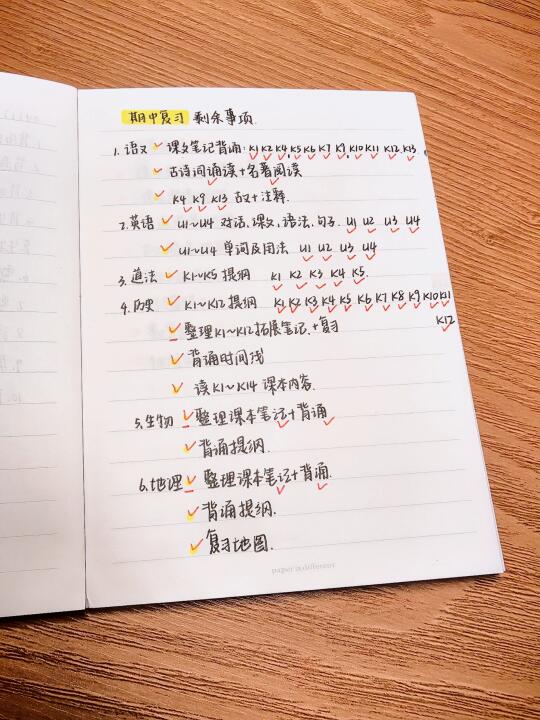 期中复习 剩余事项.
1.语文 课文笔记背诵: K1 K2 K4 K5 K6 K7 K9 K10 K11 K12 K13.
古诗词诵读+名著阅读
K4 K9 K13 古文+注释.
2.英语 U1~U4 对话,课文,语法,句子. U1 U2 U3 U4
U1~U4 单词及用法 U1 U2 U3 U4
3.道法 K1~K5 提纲 K1 K2 K3 K4 K5.
4.历史 K1~K12 提纲 K1 K2 K3 K4 K5 K6 K7 K8 K9 K10 K11
K12
整理K1~K12拓展笔记.+复习
背诵时间线
读K1~K14 课本内容.
5.生物 整理课本笔记+背诵
背诵提纲.
6.地理 整理课本笔记+背诵.
背诵提纲.
复习地图.
paper is different